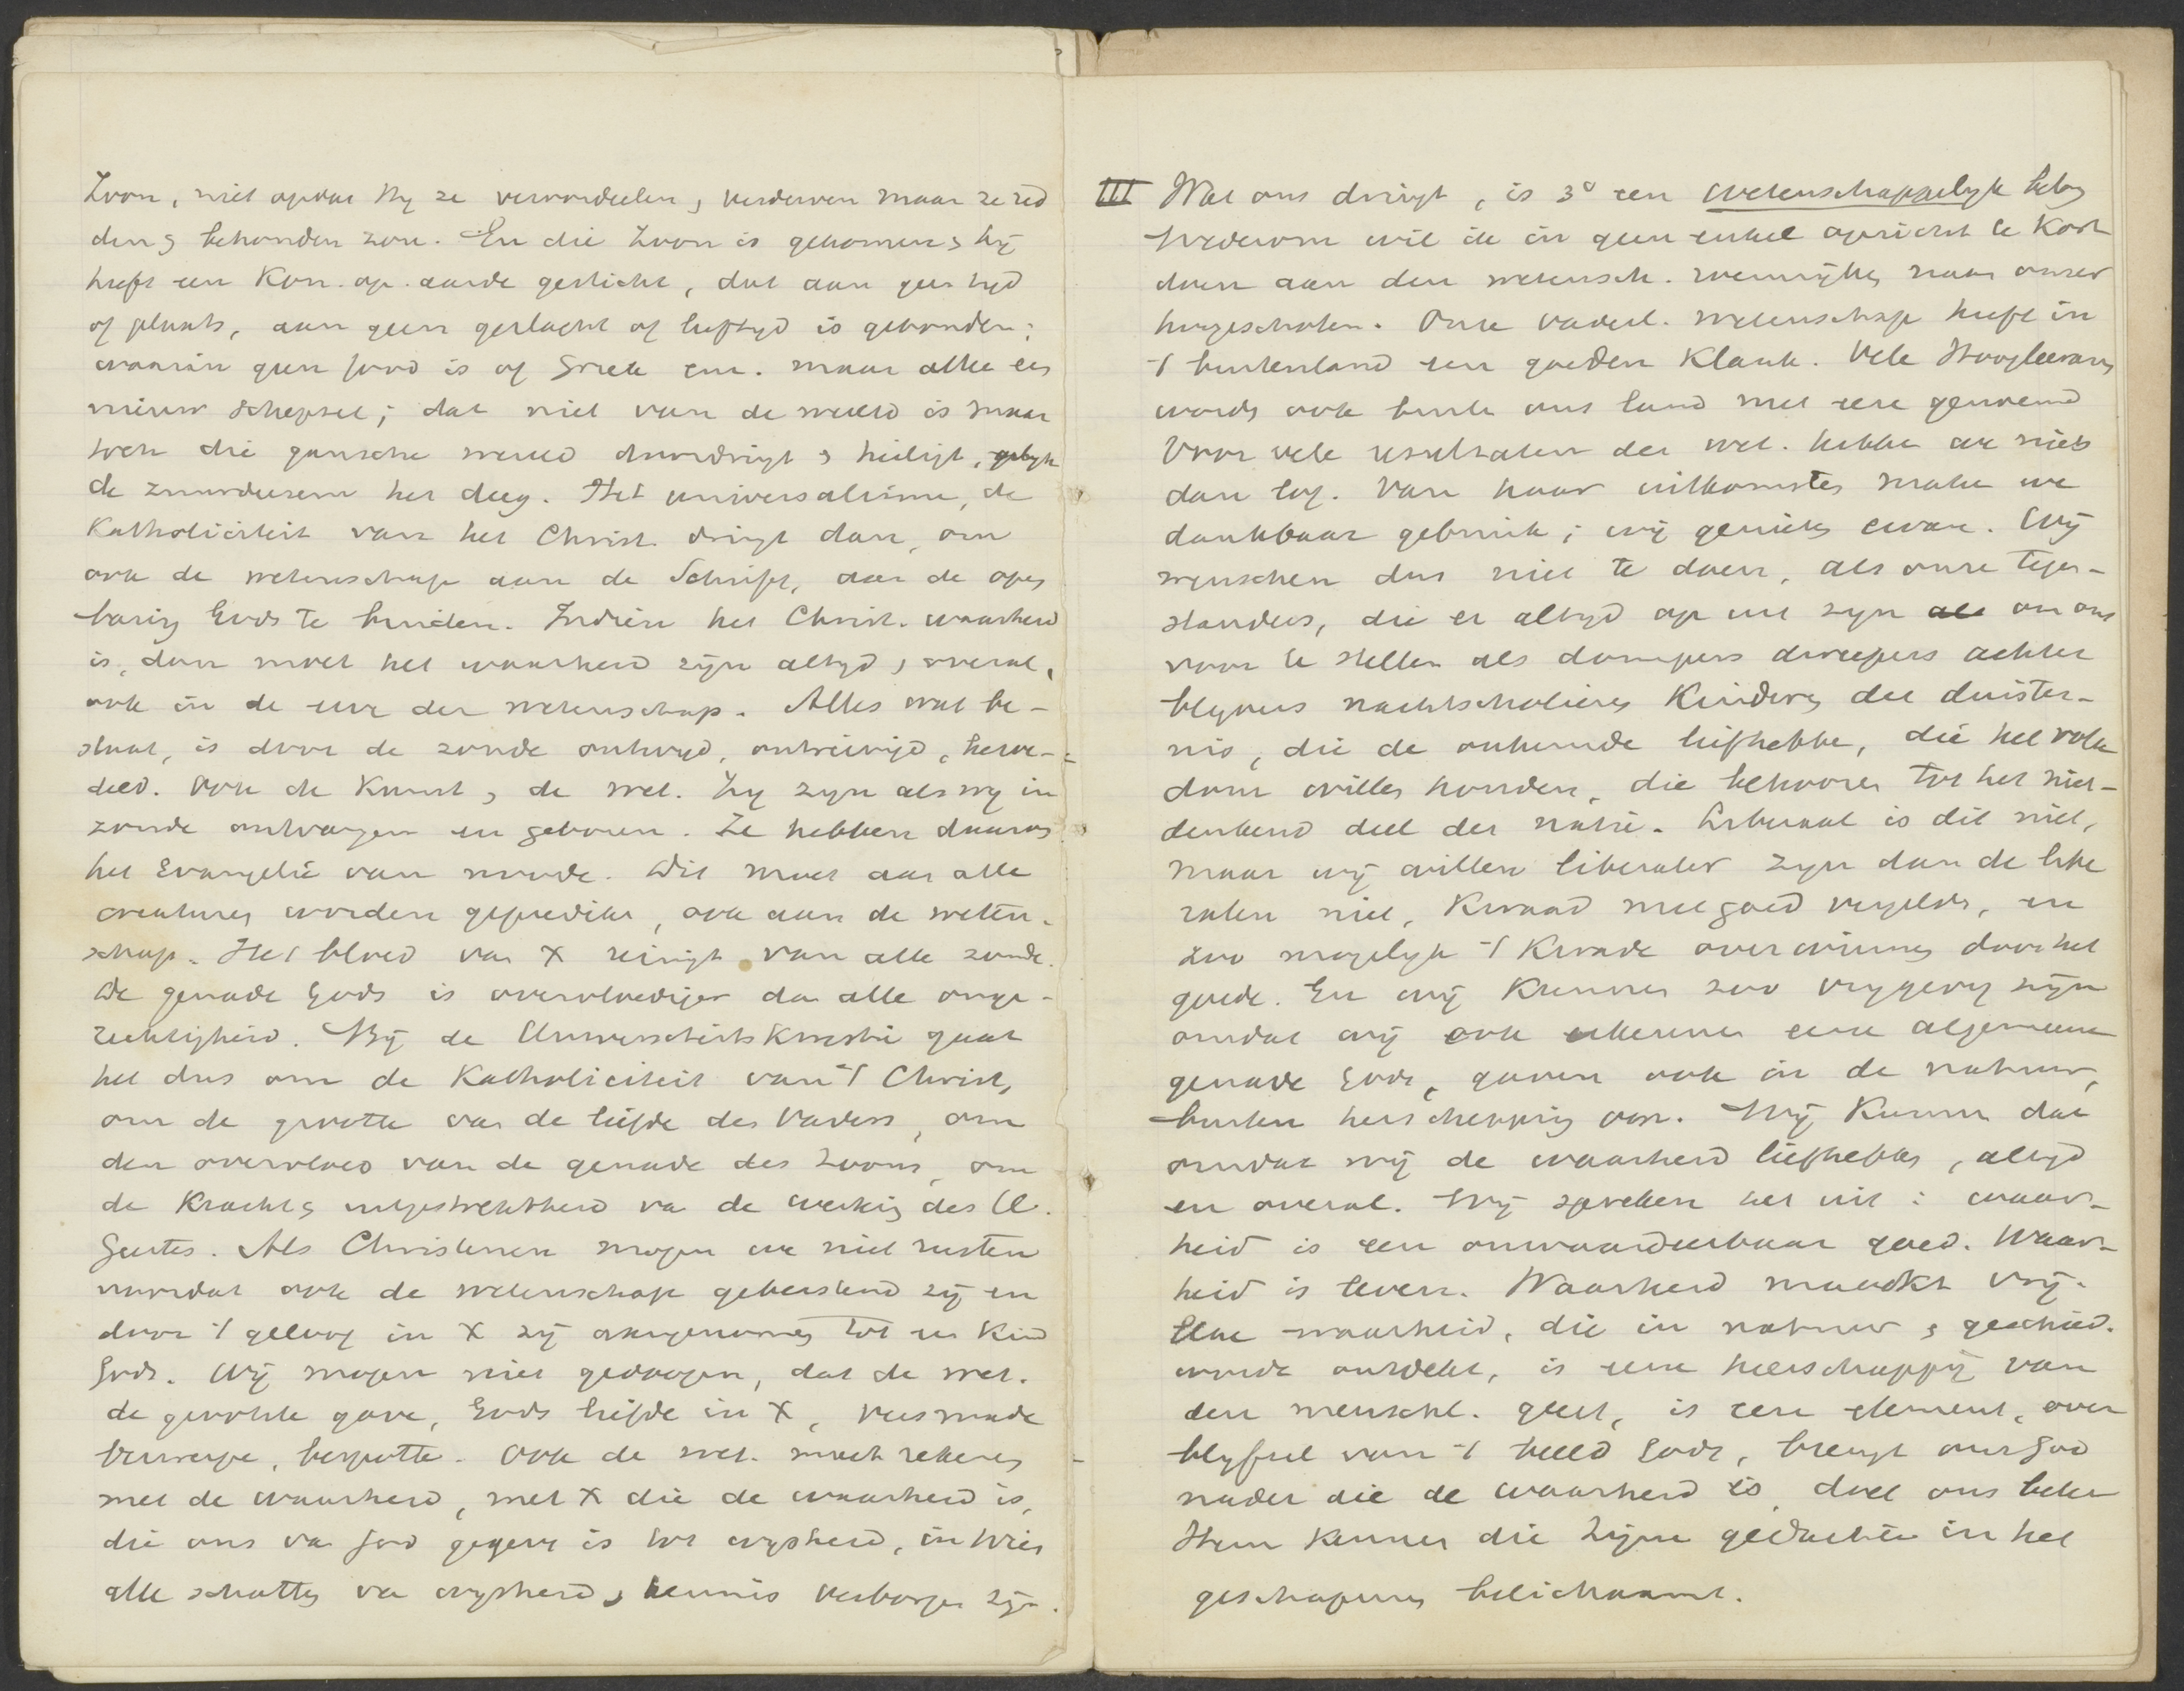 Zoon, niet opdat Hij ze veroordeelen, verderven maar ze red
den & behouden zou. En die Zoon is gekomen & hij
heeft een Kon. op aarde gesticht, dat aan geen tijd
of plaats, aan geen geslacht of leeftijd is gebonden;
waarin geen Jood is of Griek enz. maar alle een
nieuw schepsel; dat niet van de wereld is maar
toch die gansche wereld doordringt & heiligt, gelijk
de zuurdeesem het deeg. Het universalisme, de
Katholiciteit van het Christ. dringt dan, om
ook de wetenschap aan de Schrift, aan de open
baring Gods te binden. Indien het Christ. waarheid
is, dan moet het waarheid zijn altijd, overal,
ook in de eeuw der wetenschap. Alles wat be-
staat, is door de zonde ontwijd, ontreinigd,
deeld. Ook de Kunst, de wet. Zij zijn als wij in
zonde ontvangen en geboren. Ze hebben daarom
het Evangelie van noode. Dit moet aan alle
creaturen worden gepredikt, ook aan de weten-
schap. Het bloed van X reinigt van alle zonde.
De genade Gods is overvloediger dan alle onge-
rechtigheid. Bij de Universiteits Kwestie gaat
het dus om de Katholiciteit van 't Christ,
om de grootte van de liefde des Vaders, om
den overvloed van de genade des Zoons, om
de Kracht & uitgestrektheid van de werking des H.
Geestes. Als Christenen mogen we niet rusten
voordat ook de wetenschap gekerstend zij en
door 't geloof in X zij aangenomen tot een Kind
Gods. Wij mogen niet gedoogen, dat de wet.
de grootste gave, Gods liefde in X, versmade
verwerpe, bespotte. Ook de wet. moet rekenen
met de waarheid, met X die de waarheid is,
die ons van God gegeven is tot wijsheid, in Wien
alle schatten van wijsheid & kennis verborgen zijn.
III Wat ons dringt, is 3° een wetenschappelijk belang
Wederom wil ik in geen enkel opzicht te Kort
doen aan den wetensch. roem onzer
hoogescholen. Onze vaderl. wetenschap heeft in
't buitenland een goeden Klank. Vele Hoogleeraren
worden ook buiten ons land met eere genoemd
Voor vele resultaten der wet. hebben we niets
dan lof. Van haar uitkomsten maken we
dankbaar gebruik; wij genieten ervan. Wij
wenschen dus niet te doen, als onze tegen-
standers, die er altijd op uit zijn om ons
voor te stellen als dompers dweepers achter
blijvers nachtscholieren Kinderen der duister-
nis, die de onkunde liefhebben, die het volk
dom willen houden, die behooren tot het niet-
denkend deel der natie. Liberaal is dit niet,
maar wij willen liberaler zijn dan de libe
ralen niet, Kwaad met goed vergelden, en
zoo mogelijk 't Kwade overwinnen door het
goede. En wij Kunnen zoo vrijgevig zijn
omdat wij ook erkennen eene algemeene
genade Gods, gaven ook in de natuur,
buiten herschepping om. Wij Kunnen dat
omdat wij de waarheid liefhebben, altijd
en overal. Wij spreken het uit: waar-
heid is een onwaardeerbaar goed. Waar-
heid is leven. Waarheid maakt vrij.
Elke waarheid, die in natuur & geschied.
wordt ontdekt, is eene heerschappij van
den menschl. geest, is een element, over
blijfsel van 't beeld Gods, brengt ons God
nader die de waarheid is, doet ons beter
Hem Kennen die Zijne gedachten in het
geschapene belichaamt.